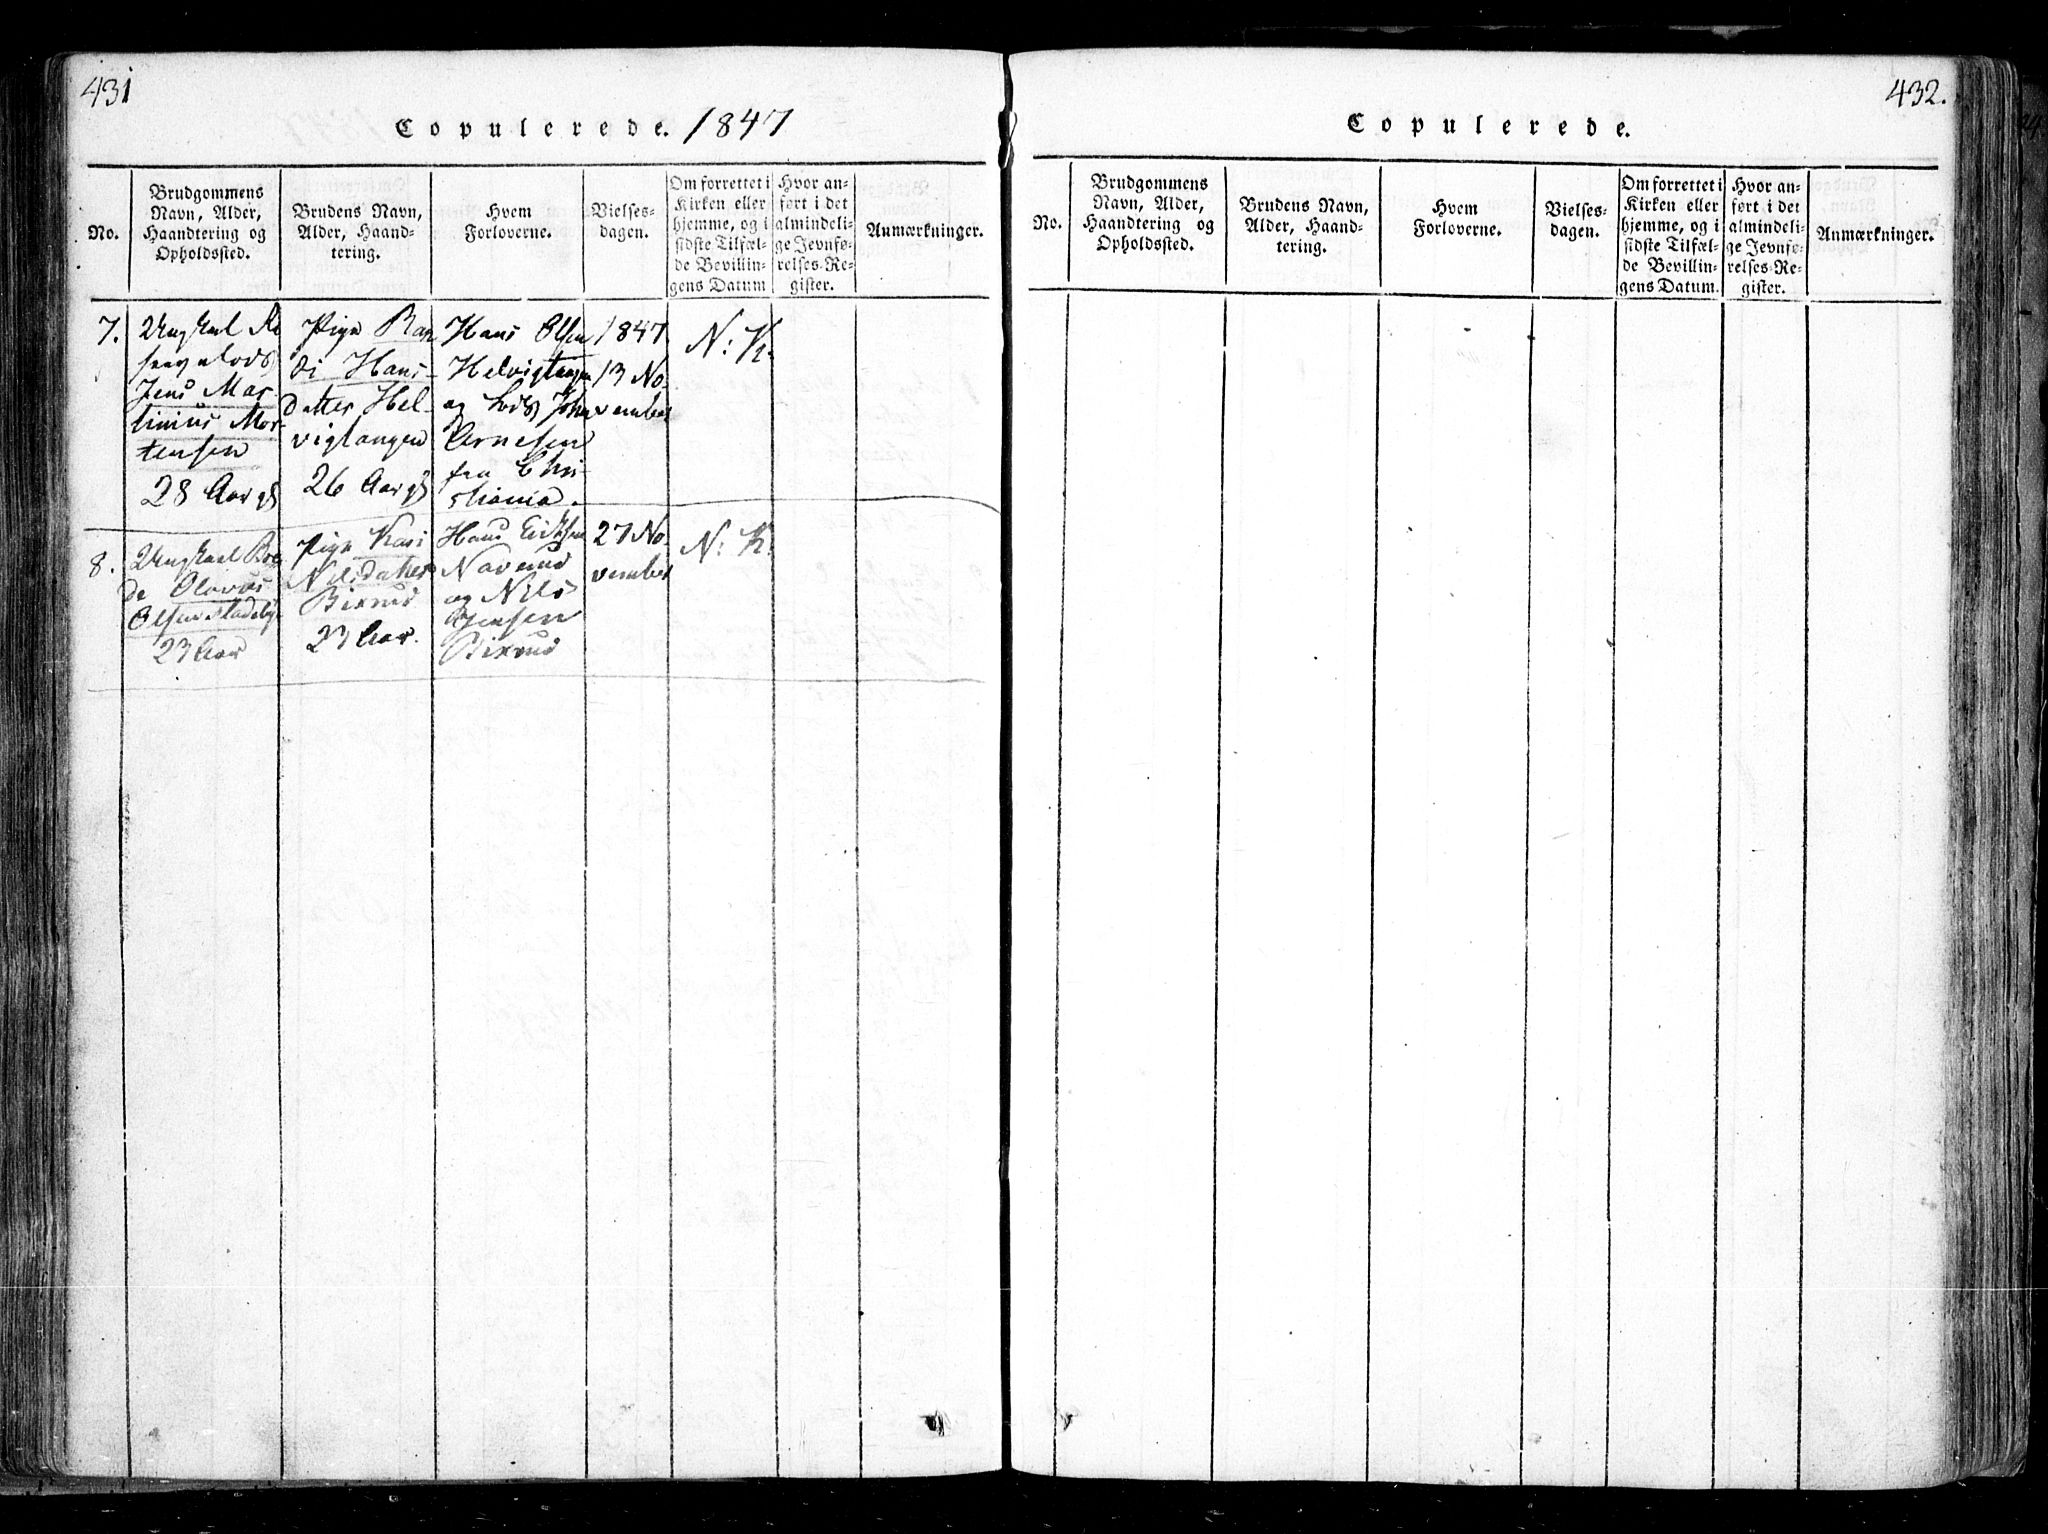 431
Copulerede. 1847
No.
Brudgommens
Navn, Alder,
Haandtering og
Opholdssted.
Brudens Navn,
Alder, Haand-
tering.
Hvem
Forloverne.
Vielses-
dagen.
Om forrettet i
Kirken eller
hjemme, og i
sidste Tilfæl-
de Bevillin-
gens Datum
Hvor an-
ført i det
almindeli-
ge Jevnfø-
relses-Re-
gister.
Anmærkninger.
7.
Ungkarl
Jens Mar-
tinius Mor-
tensen
28 Aar gl
Pige Ran
di Hans-
datter Hel-
vigtangen
26 Aar gl
Hans Olsen
Helvigtangen
og Lods John
Arnesen
fra Chri-
stiania.
1847
13 No-
vember
N: K.
8.
Ungkarl
de Olavus
Olsen
23 Aar
Pige Kari
Nilsdatter
Bixrud
23 Aar.
Hans Eriksen
Naverud
og Nils
Jensen
Bixrud
27 No
vember
N: K:
432.
Copulerede.
No.
Brudgommens
Navn, Alder,
Haandtering og
Opholdssted.
Brudens Navn,
Alder, Haand-
tering.
Hvem
Forloverne.
Vielses-
dagen.
Om forrettet i
Kirken eller
hjemme, og i
sidste Tilfæl-
de Bevillin-
gens Datum.
Hvor an-
ført i det
almindeli-
ge Jevnfø-
relses-Re-
gister.
Anmærkninger.